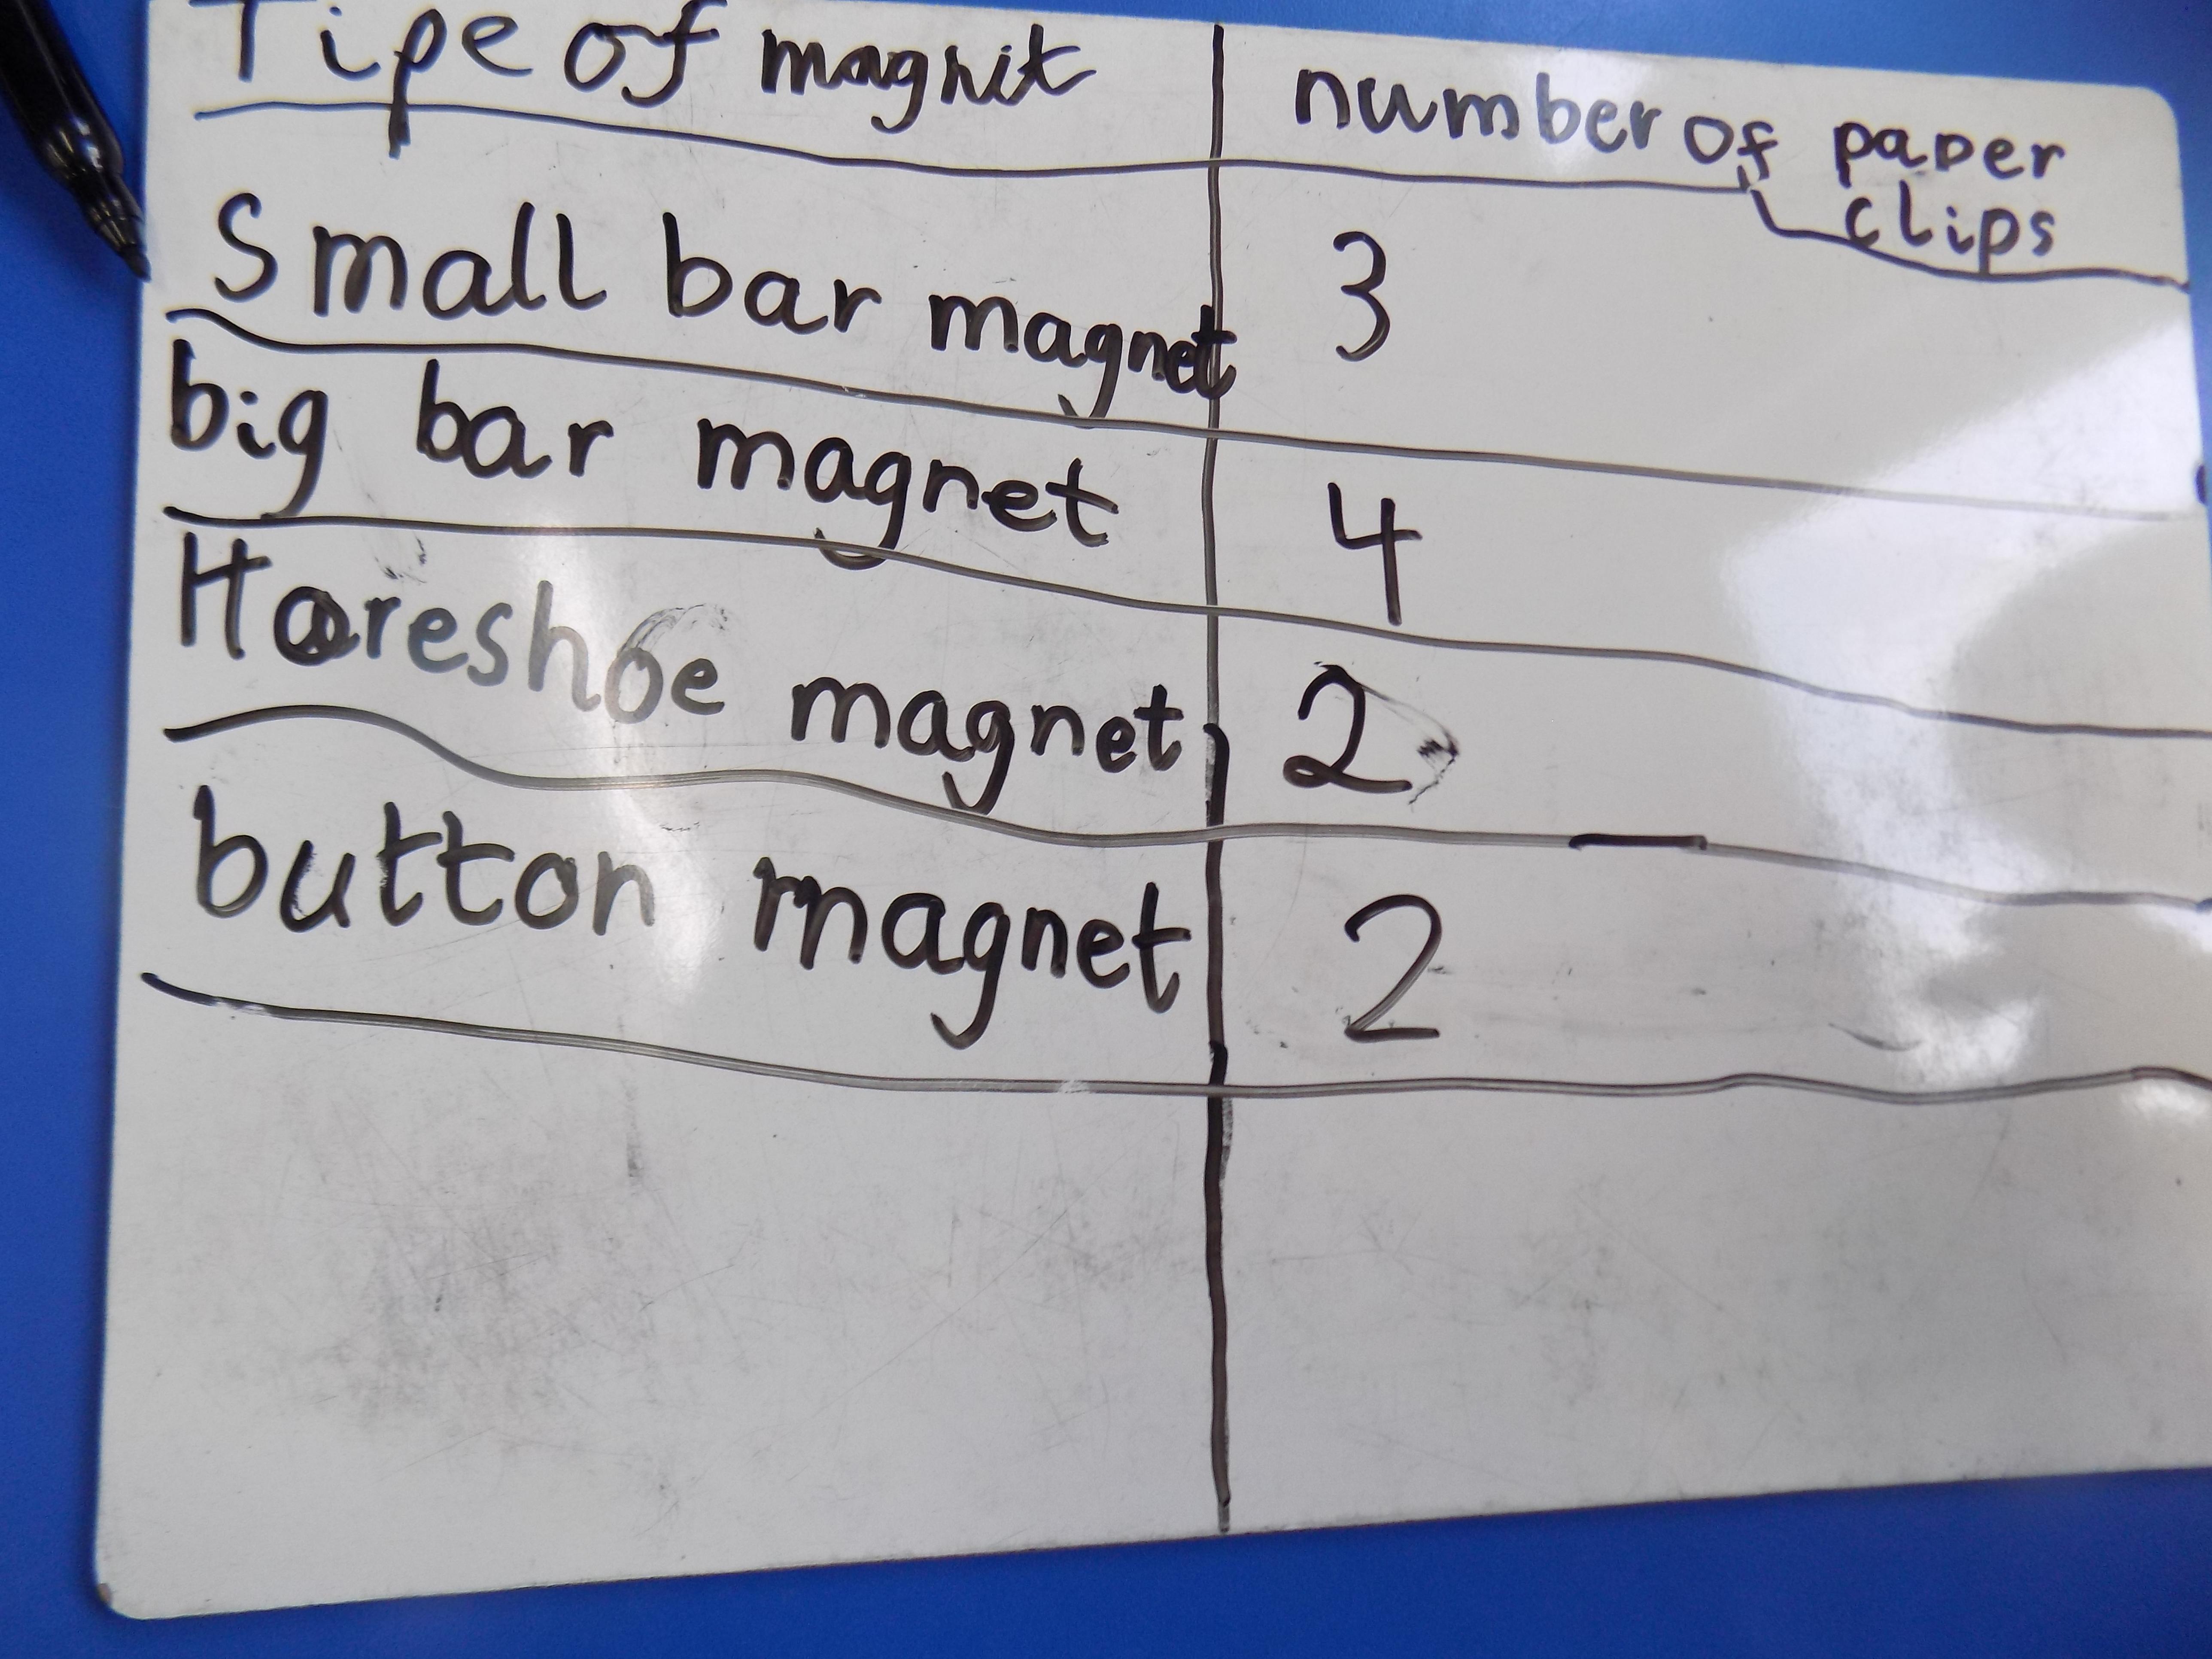 Tipe of magnit number of paper clips
Small bar magnet 3
big bar magnet 4
Horeshoe magnet 2
button magnet 2